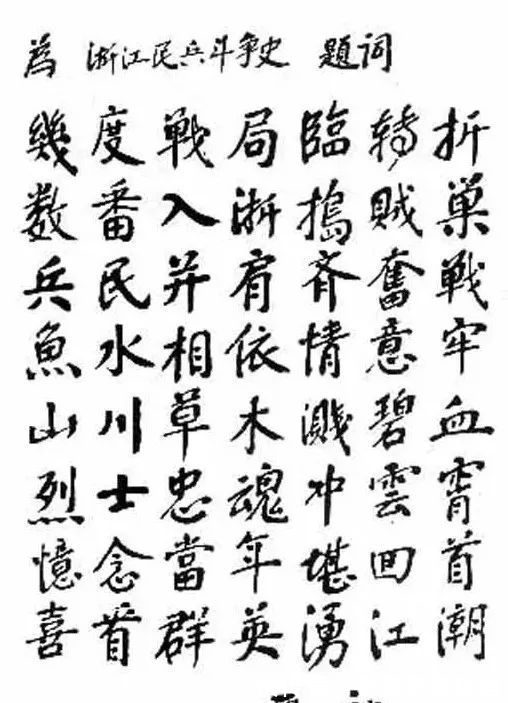 為 浙江民兵斗争史 题词
幾度戦局臨轉折
数番入浙搗賊巢
兵民并肩齐奮戦
魚水相依情意牢
山川草木濺碧血
烈士忠魂冲雲霄
憶念當年堪回首
喜看群英湧江潮